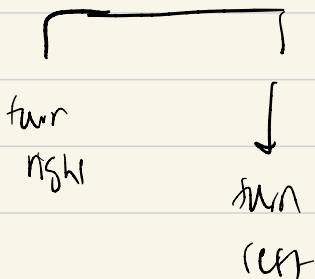 turn
right
turn
left